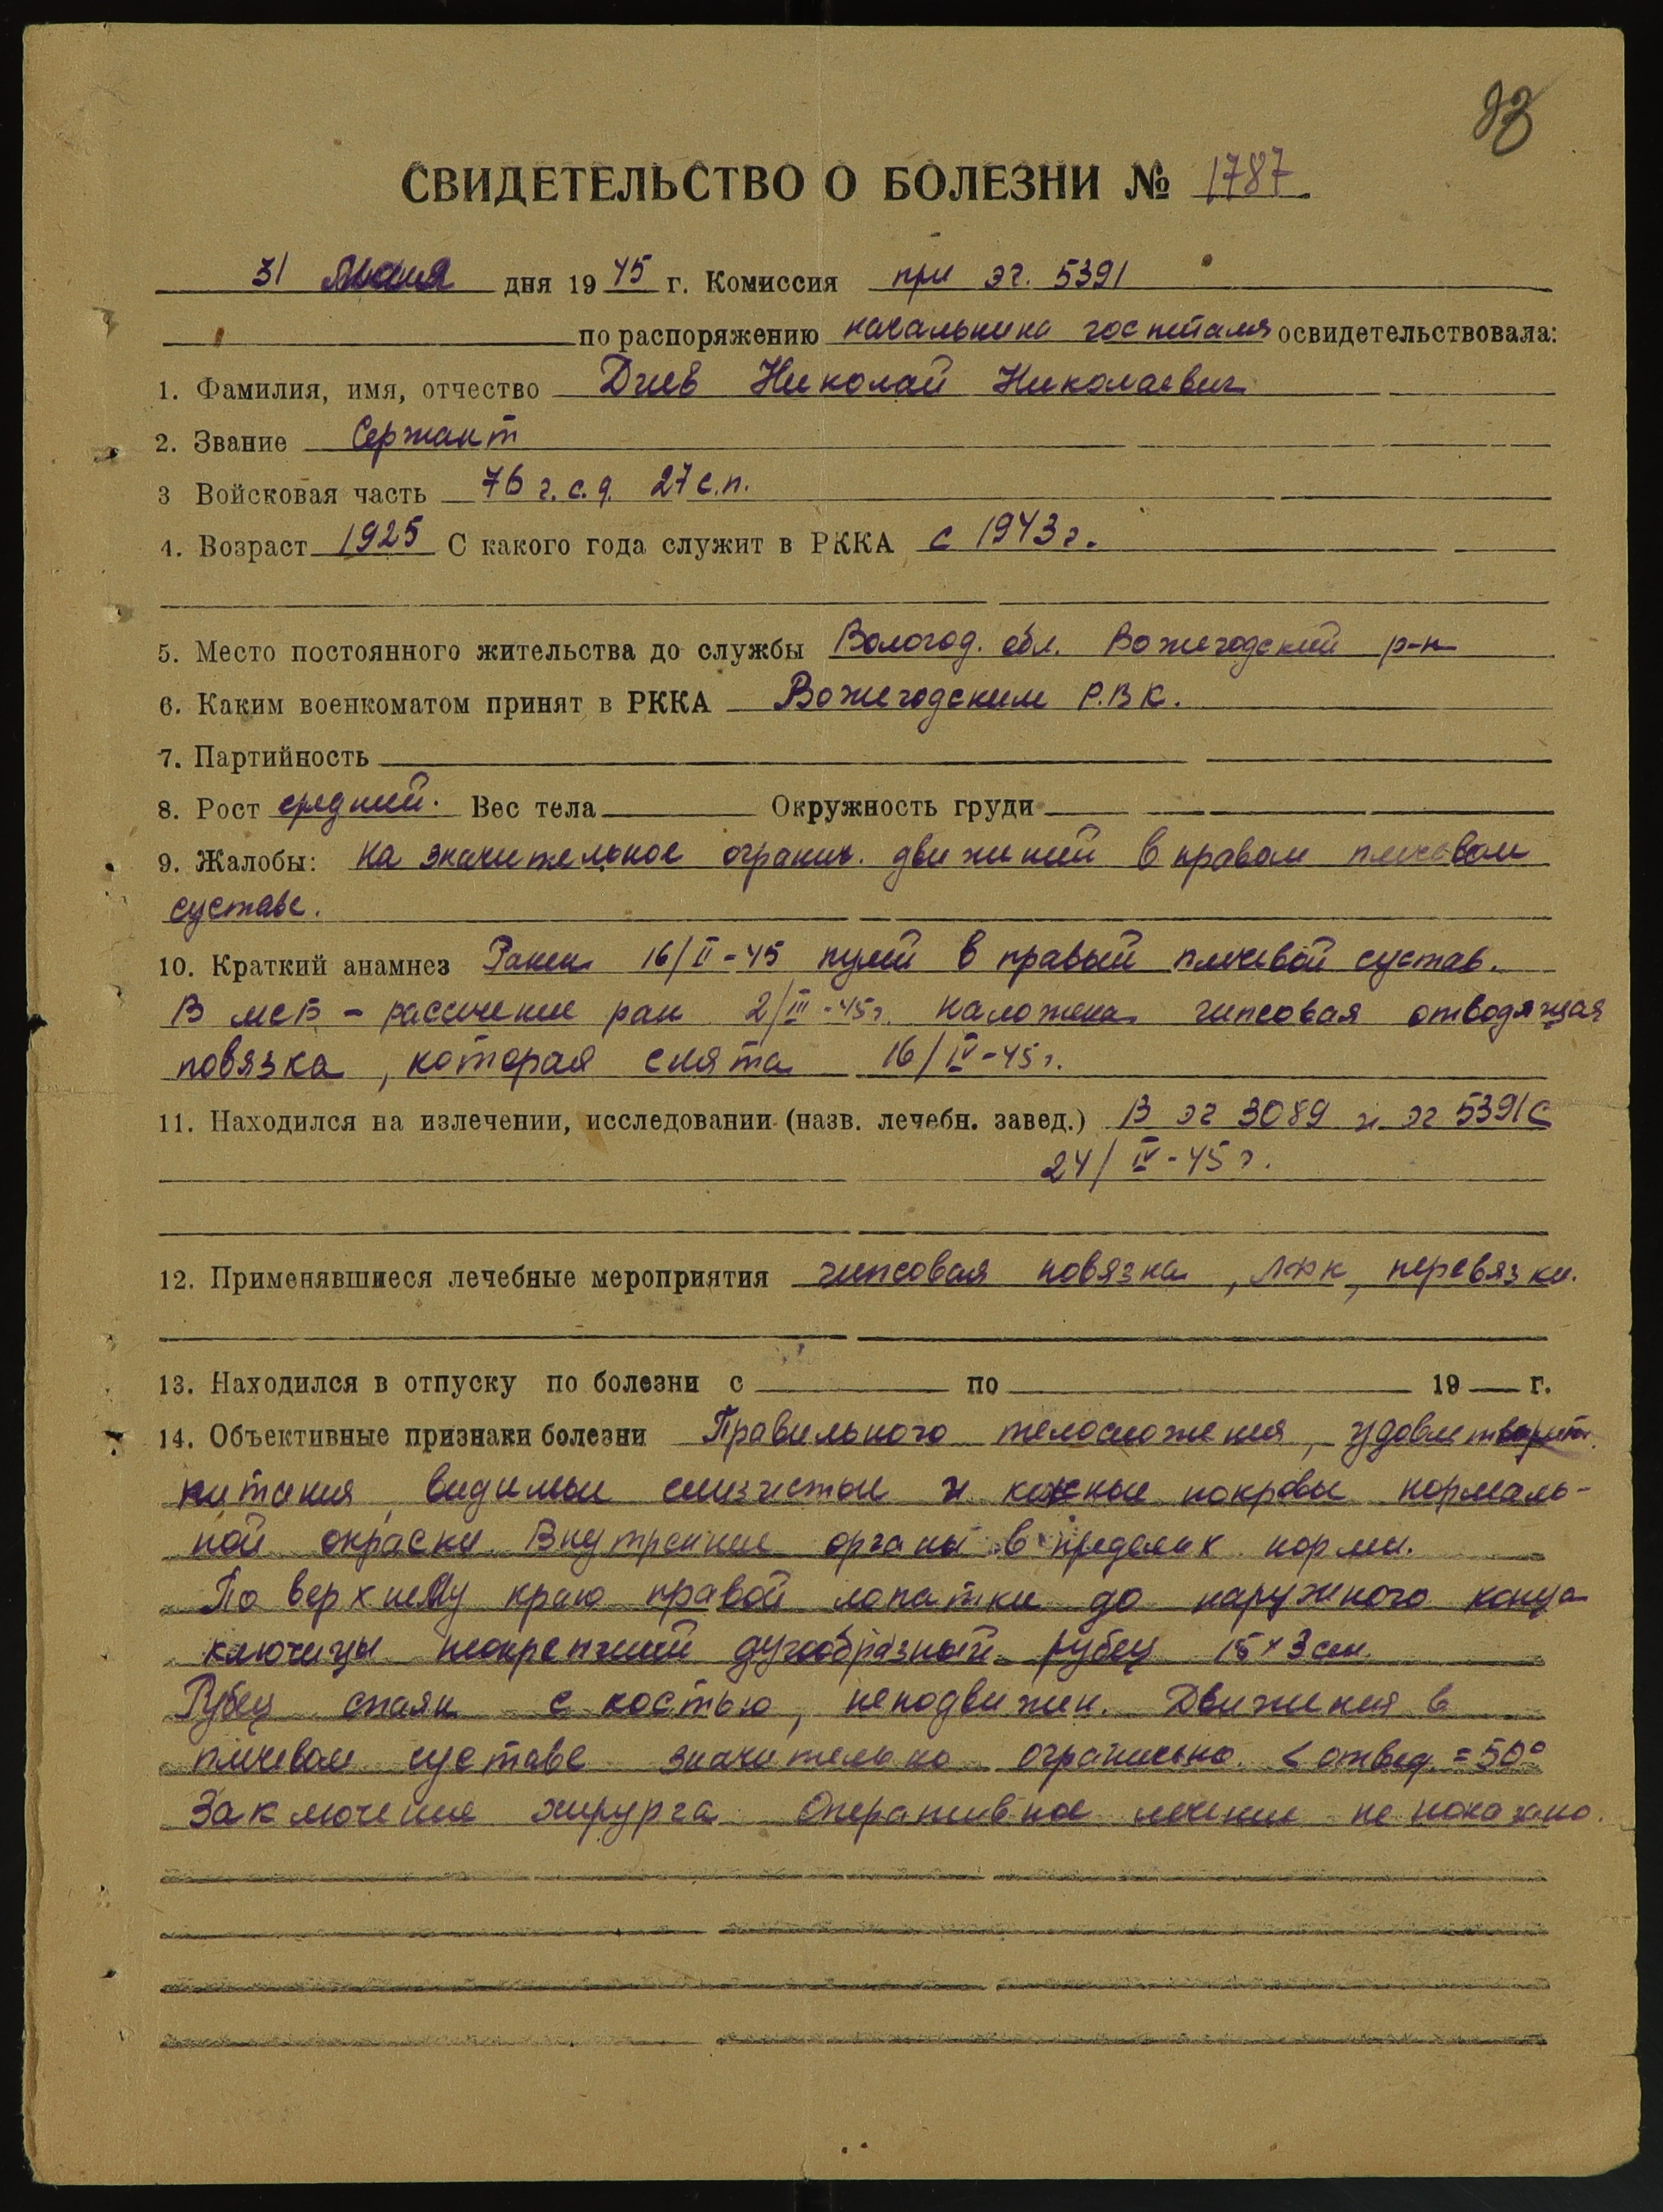 83
СВИДЕТЕЛЬСТВО О БОЛЕЗНИ № 1787
31 мая дня 1945 г. Комиссия при эг. 5391
по распоряжению начальника госпиталя освидетельствовала:
1. Фамилия, имя, отчество Диев Николай Николаевич
2. Звание Сержант
3 Войсковая часть 76 г.с.д. 27 с.п.
4. Возраст 1925 С какого года служит в РККА с 1943 г.
5. Место постоянного жительства до службы Вологод. обл. Вожегодский р-н
6. Каким военкоматом принят в РККА Вожегодским Р.В.К.
7. Партийность
8. Рост средний. Вес тела Окружность груди
9. Жалобы: на значительное огранич. движений в правом плечевом
суставе.
10. Краткий анамнез Ранен 16/II-45 пулей в правый плечевой сустав.
В мсб - рассечение ран 2/III-45г. наложена гипсовая отводящая
повязка, которая снята 16/IV-45г.
11. Находился на излечении, исследовании (назв. лечебн. завед.) В эг 3089 и эг 5391 с
24/IV-45 г.
12. Применявшиеся лечебные мероприятия гипсовая повязка, ЛФК, перевязки.
13. Находился в отпуску по болезни с по 19 г.
14. Объективные признаки болезни Правильного телосложения, удовлетворит.
питания, видимые слизистые и кожные покровы нормаль-
ной окраски. Внутренние органы в пределах нормы.
По верхнему краю правой лопатки до наружного конца
ключицы неокрепший дугообразный рубец 15×3 см.
Рубец спаян с костью, неподвижен. Движения в
плечевом суставе значительно ограничено. < отвед. = 50°
Заключение хирурга: Оперативное лечение не показано.